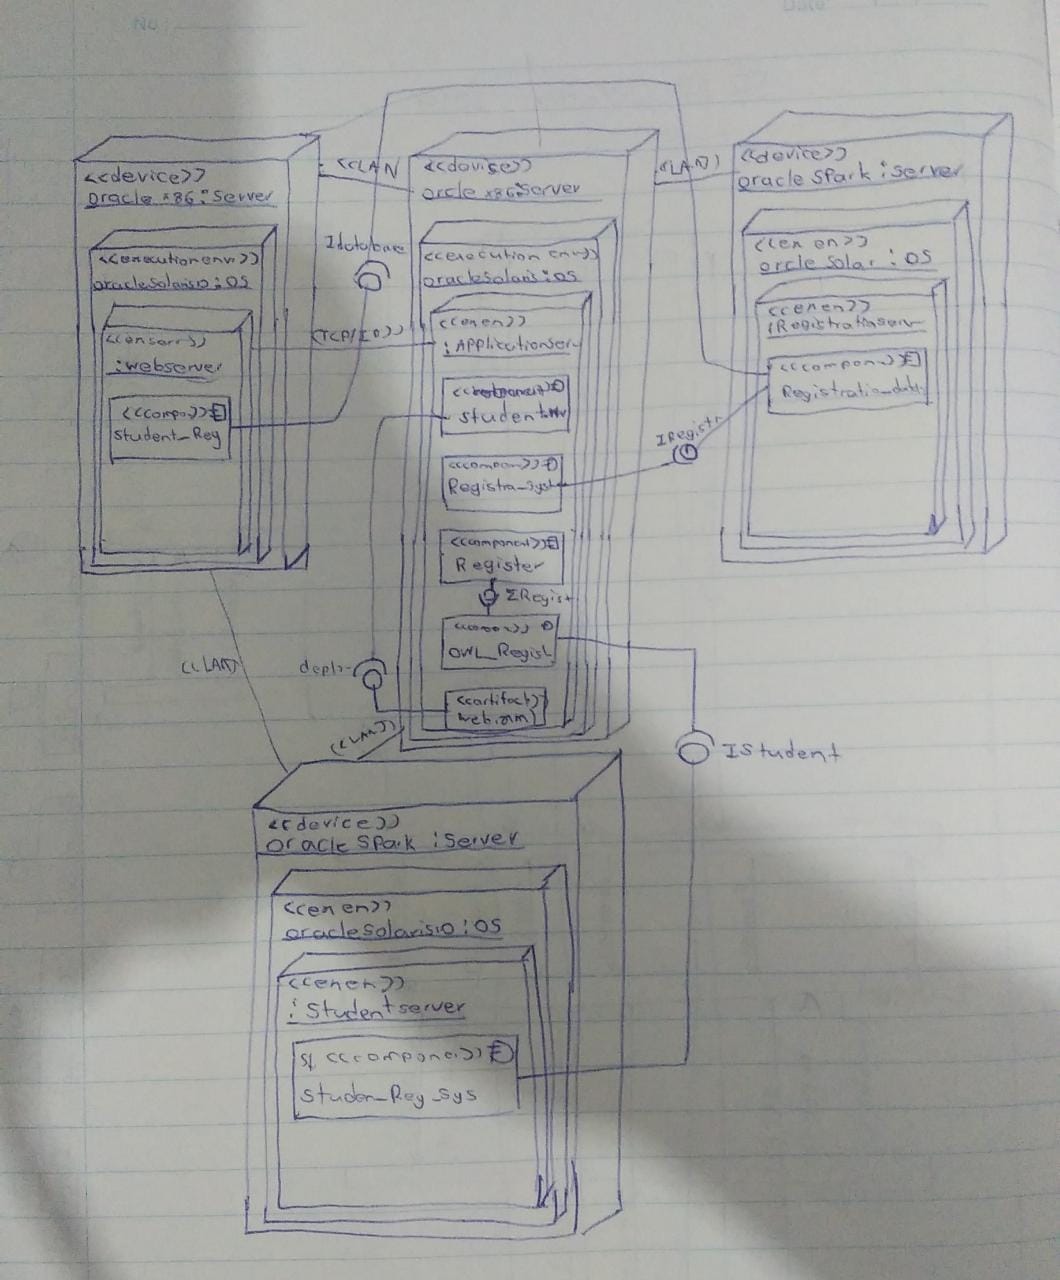 No
Date
<<device>>
oracle x86:Server
<<execution env>>
oracleSolaris10:OS
:webserver
<<compo>>
Student_Reg
<<LAN
Idatabase
<<devise>>
orcle x86:Server
<<execution env>>
oracleSolaris:OS
<<en en>>
:APPlicationser
student
<<compon>>
Registra_syst
<<component>>
Register
IRegist
OWL_Regist
<<artifact>>
<<LAN>>
<<device>>
oracle Spark :Server
<<en en>>
orcle solar :OS
<<en en>>
:Registrationserv
<<compon>>
IRegistr
<<LAN>>
deplo
<<LAN>>
IStudent
<<device>>
oracle Spark :Server
<<en en>>
oracleSolaris10:OS
<<en en>>
:Studentserver
<<compone>>
Studen_Reg_sys